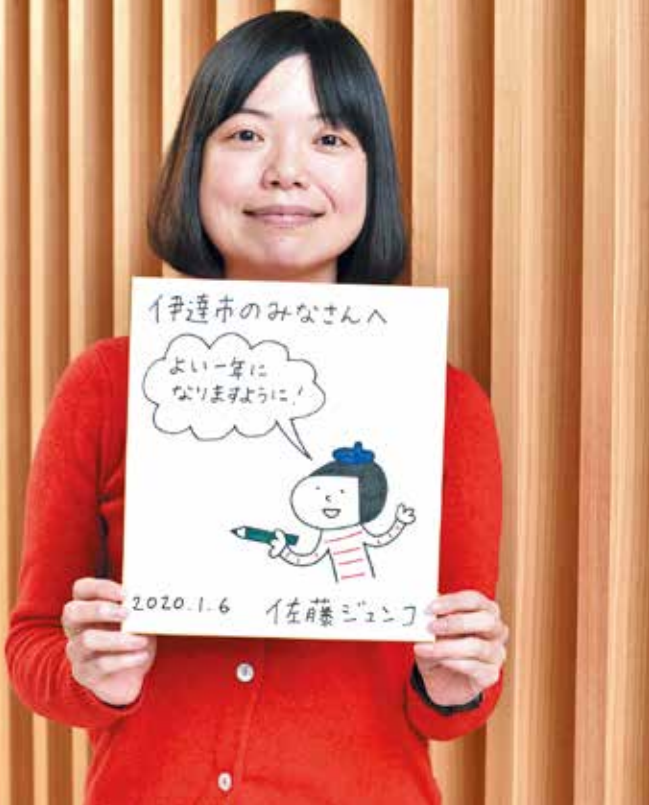 伊達市のみなさんへ
よい一年に
なりますように!
2020.1.6 佐藤ジュンコ